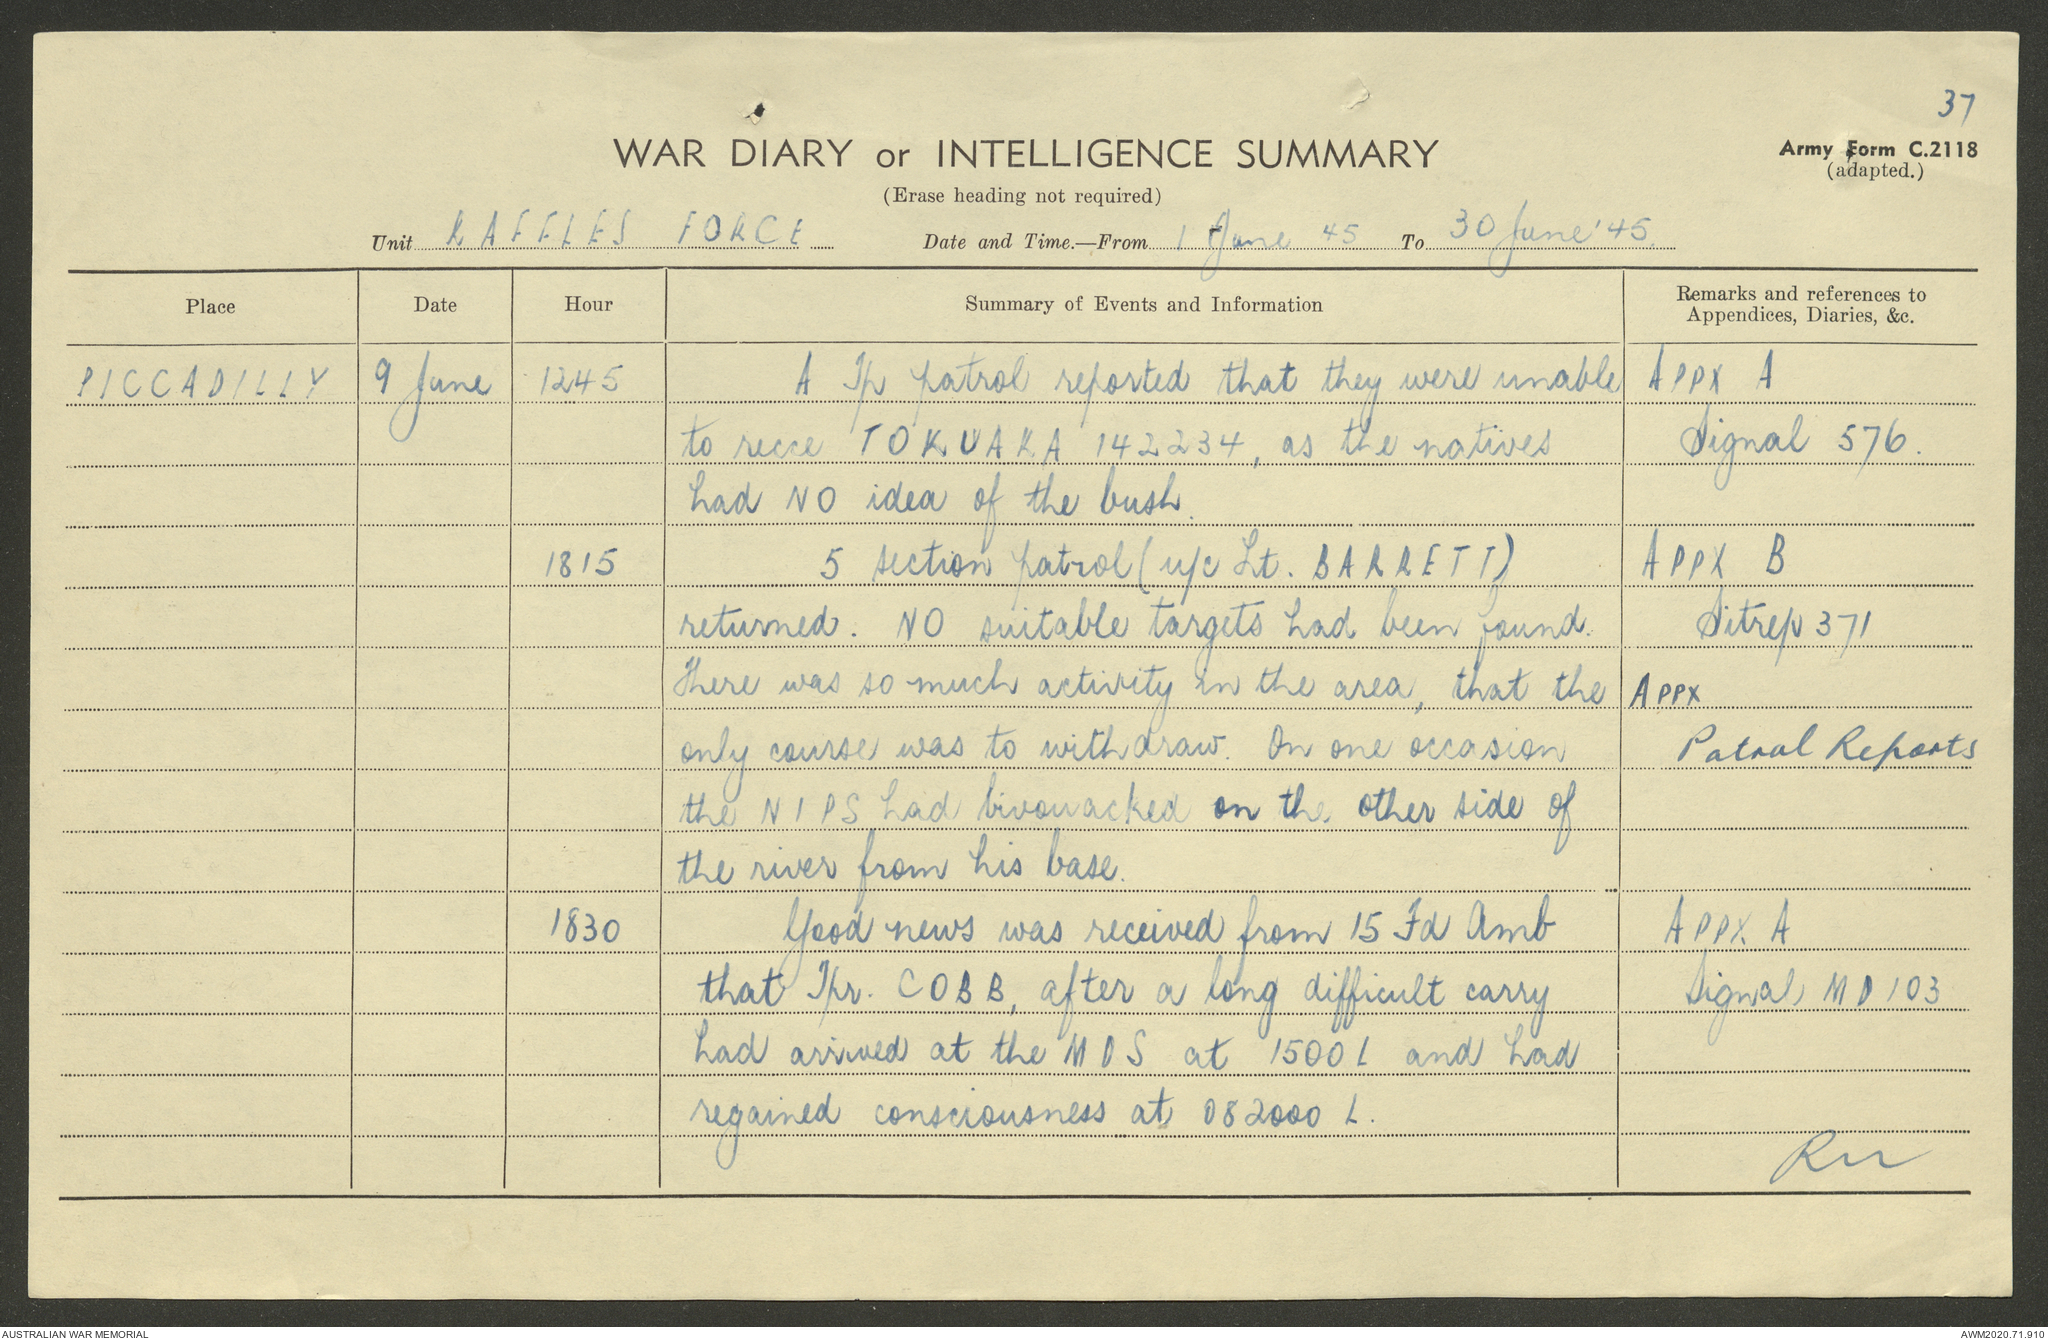 37
WAR DIARY or INTELLIGENCE SUMMARY
Army Form C.2118
(adapted.)
(Erase heading not required)
Unit RAFFLES FORCE Date and Time.—From 1 June 45 To 30 June '45.
Place Date Hour Summary of Events and Information Remarks and references to Appendices, Diaries, &c.
PICCADILLY 9 June 1245 A Tp patrol reported that they were unable APPX A
to recce TOKUAKA 142234, as the natives Signal 576.
had NO idea of the bush.
1815 5 section patrol (u/c Lt. BARRETT) APPX B
returned. NO suitable targets had been found. Sitrep 371
There was so much activity in the area, that the APPX
only course was to withdraw. On one occasion Patrol Reports
the NIPS had bivouacked on the other side of
the river from his base.
1830 Good news was received from 15 Fd Amb APPX A
that Tpr. COBB, after a long difficult carry Signal MD 103
had arrived at the MDS at 1500 L and had
regained consciousness at 082000 L.
AUSTRALIAN WAR MEMORIAL
AWM2020.71.910